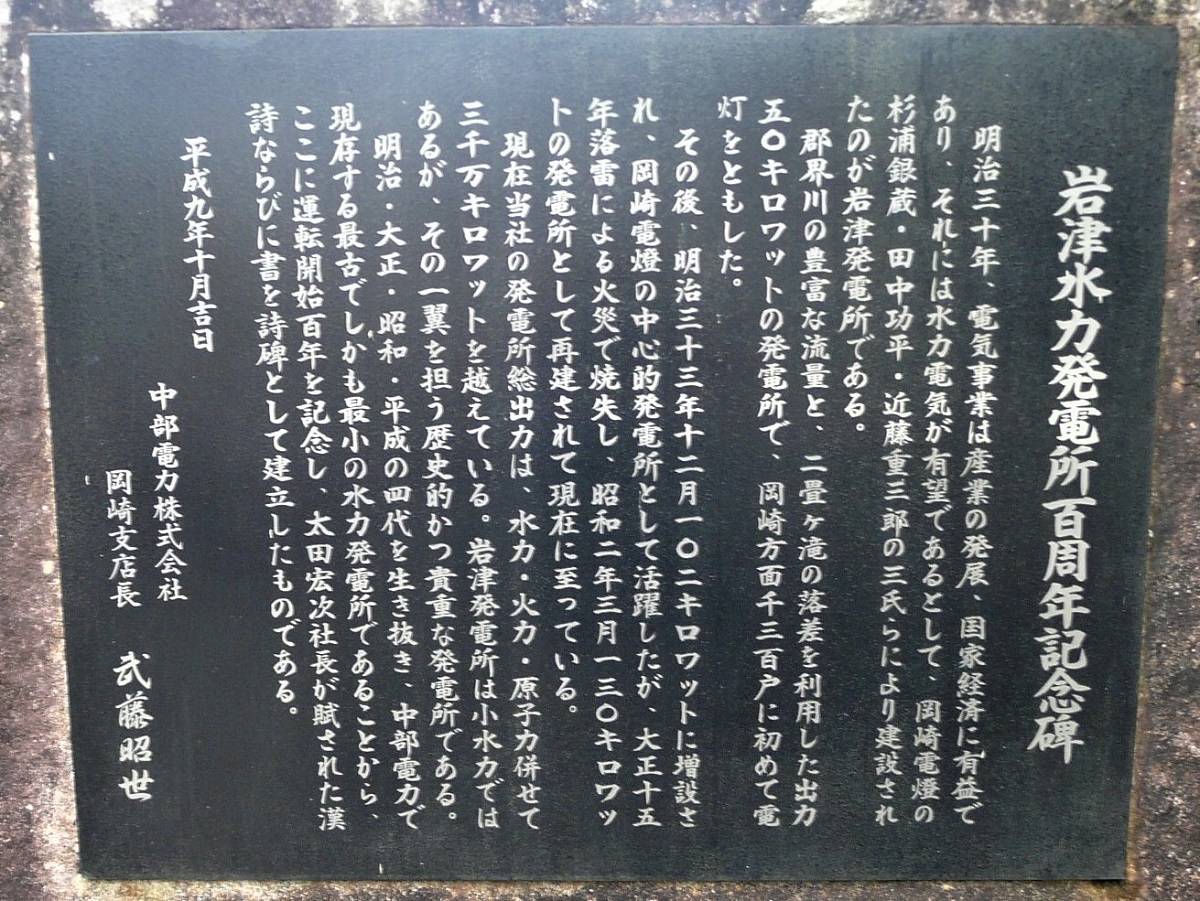 岩津水力発電所百周年記念碑
明治三十年、電気事業は産業の発展、国家経済に有益で
あり、それには水力電気が有望であるとして、岡崎電燈の
杉浦銀蔵・田中功平・近藤重三郎の三氏らにより建設され
たのが岩津発電所である。
郡界川の豊富な流量と、二畳ヶ滝の落差を利用した出力
五〇キロワットの発電所で、岡崎方面千三百戸に初めて電
灯をともした。
その後、明治三十三年十二月一〇二キロワットに増設さ
れ、岡崎電燈の中心的発電所として活躍したが、大正十五
年落雷による火災で焼失し、昭和二年三月一三〇キロワッ
トの発電所として再建されて現在に至っている。
現在当社の発電所総出力は、水力・火力・原子力併せて
三千万キロワットを越えている。岩津発電所は小水力では
あるが、その一翼を担う歴史的かつ貴重な発電所である。
明治・大正・昭和・平成の四代を生き抜き、中部電力で
現存する最古でしかも最小の水力発電所であることから、
ここに運転開始百年を記念し、太田宏次社長が賦された漢
詩ならびに書を詩碑として建立したものである。
平成九年十月吉日
中部電力株式会社
岡崎支店長 武藤昭世